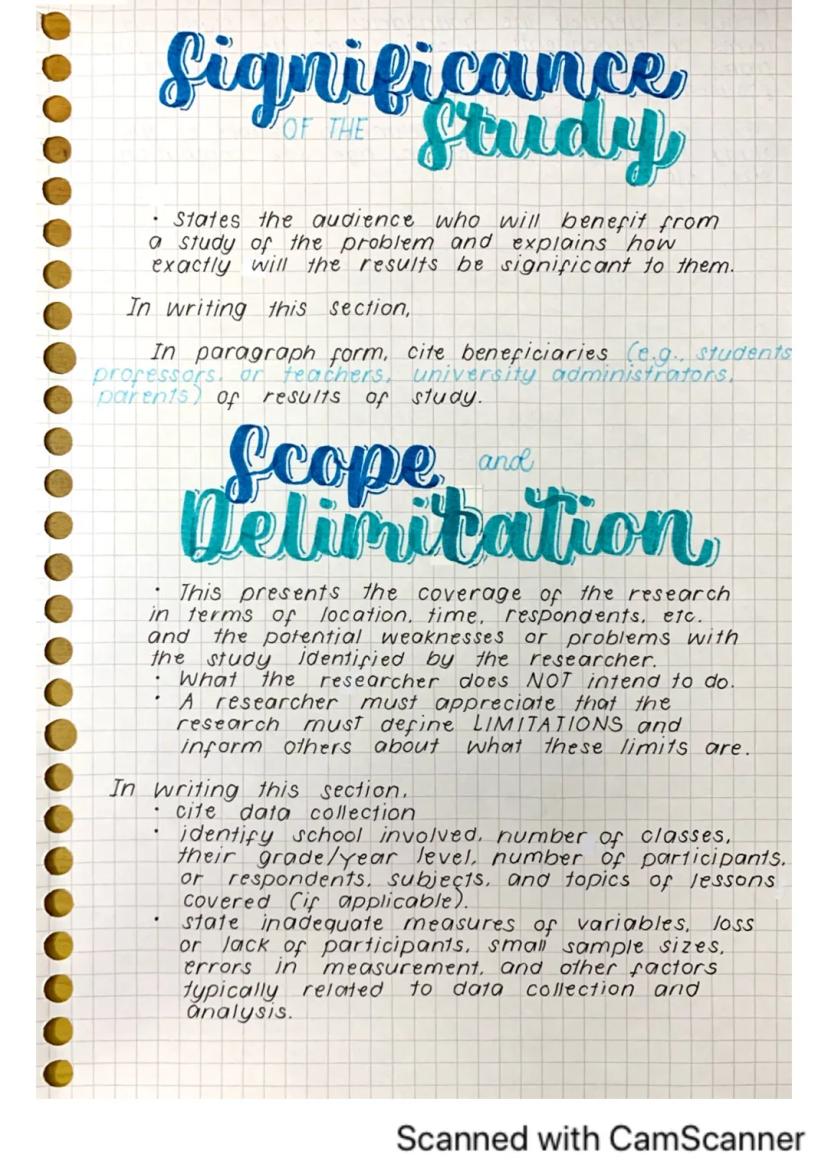 Significance
OF THE Study
• States the audience who will benefit from
a study of the problem and explains how
exactly will the results be significant to them.
In writing this section,
In paragraph form, cite beneficiaries (e.g., students
professors, or teachers, university administrators,
parents) of results of study.
Scope and
Delimitation
• This presents the coverage of the research
in terms of location, time, respondents, etc.
and the potential weaknesses or problems with
the study identified by the researcher.
• What the researcher does NOT intend to do.
• A researcher must appreciate that the
research must define LIMITATIONS and
inform others about what these limits are.
In writing this section,
• cite data collection
• identify school involved, number of classes,
their grade/year level, number of participants,
or respondents, subjects, and topics of lessons
covered (if applicable).
• state inadequate measures of variables, loss
or lack of participants, small sample sizes,
errors in measurement, and other factors
typically related to data collection and
analysis.
Scanned with CamScanner